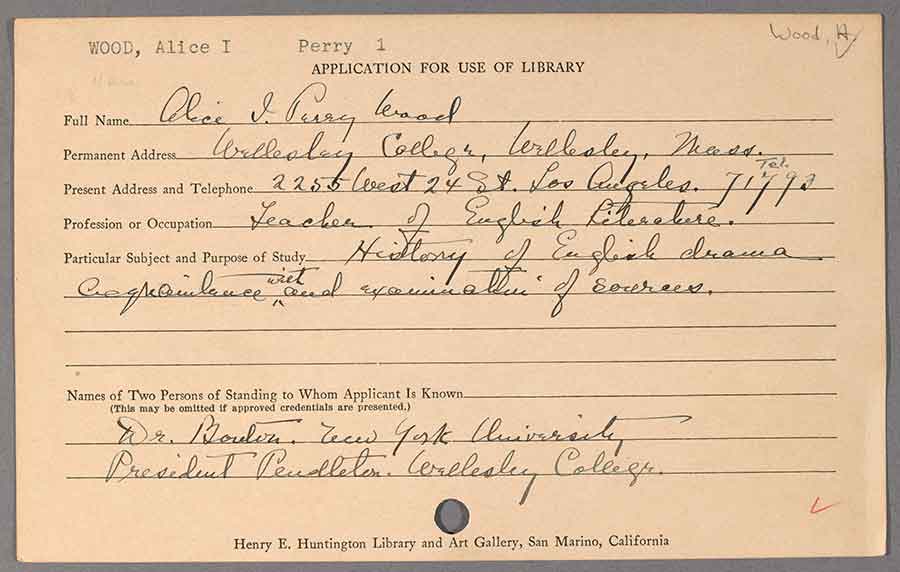 WOOD, Alice I Perry 1
Wood, H
APPLICATION FOR USE OF LIBRARY
Full Name Alice I. Perry Wood
Permanent Address Wellesley College, Wellesley, Mass.
Present Address and Telephone 2255 West 24 St. Los Angeles. Tel.
Profession or Occupation Teacher of English Literature.
Particular Subject and Purpose of Study History of English drama
acquaintance with and examination of sources.
Names of Two Persons of Standing to Whom Applicant Is Known
(This may be omitted if approved credentials are presented.)
Dr. Bouton. New York University
President Pendleton. Wellesley College.
Henry E. Huntington Library and Art Gallery, San Marino, California